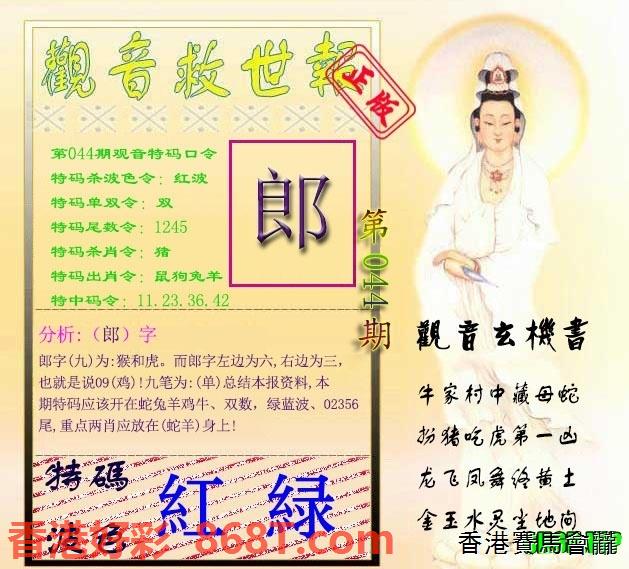 觀音救世報
正版
第044期观音特码口令
特码杀波色令：红波
特码单双令：双
特码尾数令：1245
特码杀肖令：猪
特码出肖令：鼠狗兔羊
特中码令：11.23.36.42
郎
第044期
分析:（郎）字
郎字(九)为:猴和虎。而郎字左边为六,右边为三，
也就是说09(鸡)!九笔为:(单)总结本报资料,本
期特码应该开在蛇兔羊鸡牛、双数，绿蓝波、02356
尾,重点两肖应放在(蛇羊)身上!
觀音玄機書
牛家村中藏母蛇
扮猪吃虎第一凶
龙飞凤舞终黄土
金玉水灵坐地间
特碼
波色
紅 绿
香港好彩 868T.com
香港賽馬會